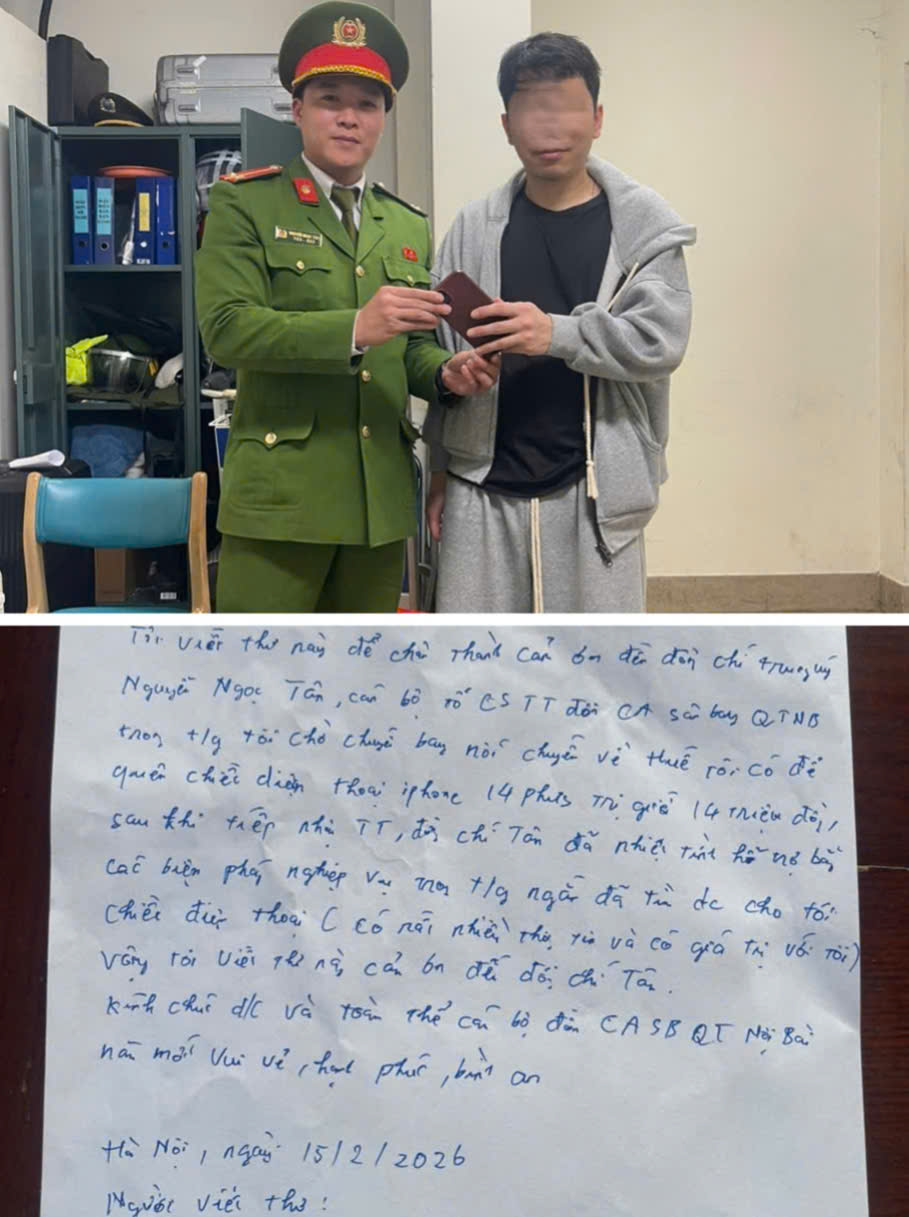 Tôi viết thư này để chân thành cảm ơn đến đồng chí trung úy
Nguyễn Ngọc Tân, cán bộ tổ CSTT đồn CA sân bay QTNB
trong t/g tôi chờ chuyến bay nối chuyến về Huế tôi có để
quên chiếc điện thoại iphone 14 plus trị giá 14 triệu đồng,
sau khi tiếp nhận TT, đồng chí Tân đã nhiệt tình hỗ trợ bằng
các biện pháp nghiệp vụ trong t/g ngắn đã tìm dc cho tôi
chiếc điện thoại (có rất nhiều thông tin và có giá trị với tôi)
Vậy tôi viết thư này cảm ơn đến đồng chí Tân.
Kính chúc đ/c và toàn thể cán bộ đồn CASBQT Nội Bài
năm mới vui vẻ, hạnh phúc, bình an
Hà Nội, ngày 15/2/2026
Người viết thư: